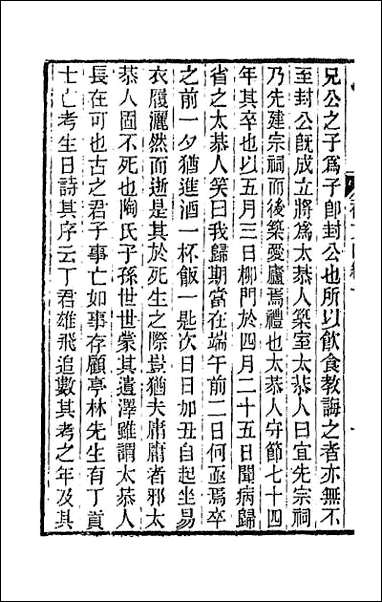 兄公之子爲子卽封公也所以飮食教誨之者亦無不
至封公旣成立將爲太恭人築室太恭人曰宜先宗祠
乃先建宗祠而後築愛廬焉禮也太恭人守節七十四
年其卒也以五月三日柳門於四月二十五日聞病歸
省之太恭人笑曰我歸期當在端午前二日何亟焉卒
之前一夕猶進酒一杯飯一匙次日日加丑自起坐易
衣履灑然而逝是其於死生之際豈猶夫庸庸者邪太
恭人固不死也陶氏子孫世世蒙其遺澤雖謂太恭人
長在可也古之君子事亡如事存顧亭林先生有丁貢
士亡考生日詩其序云丁君雄飛追數其考之年及其